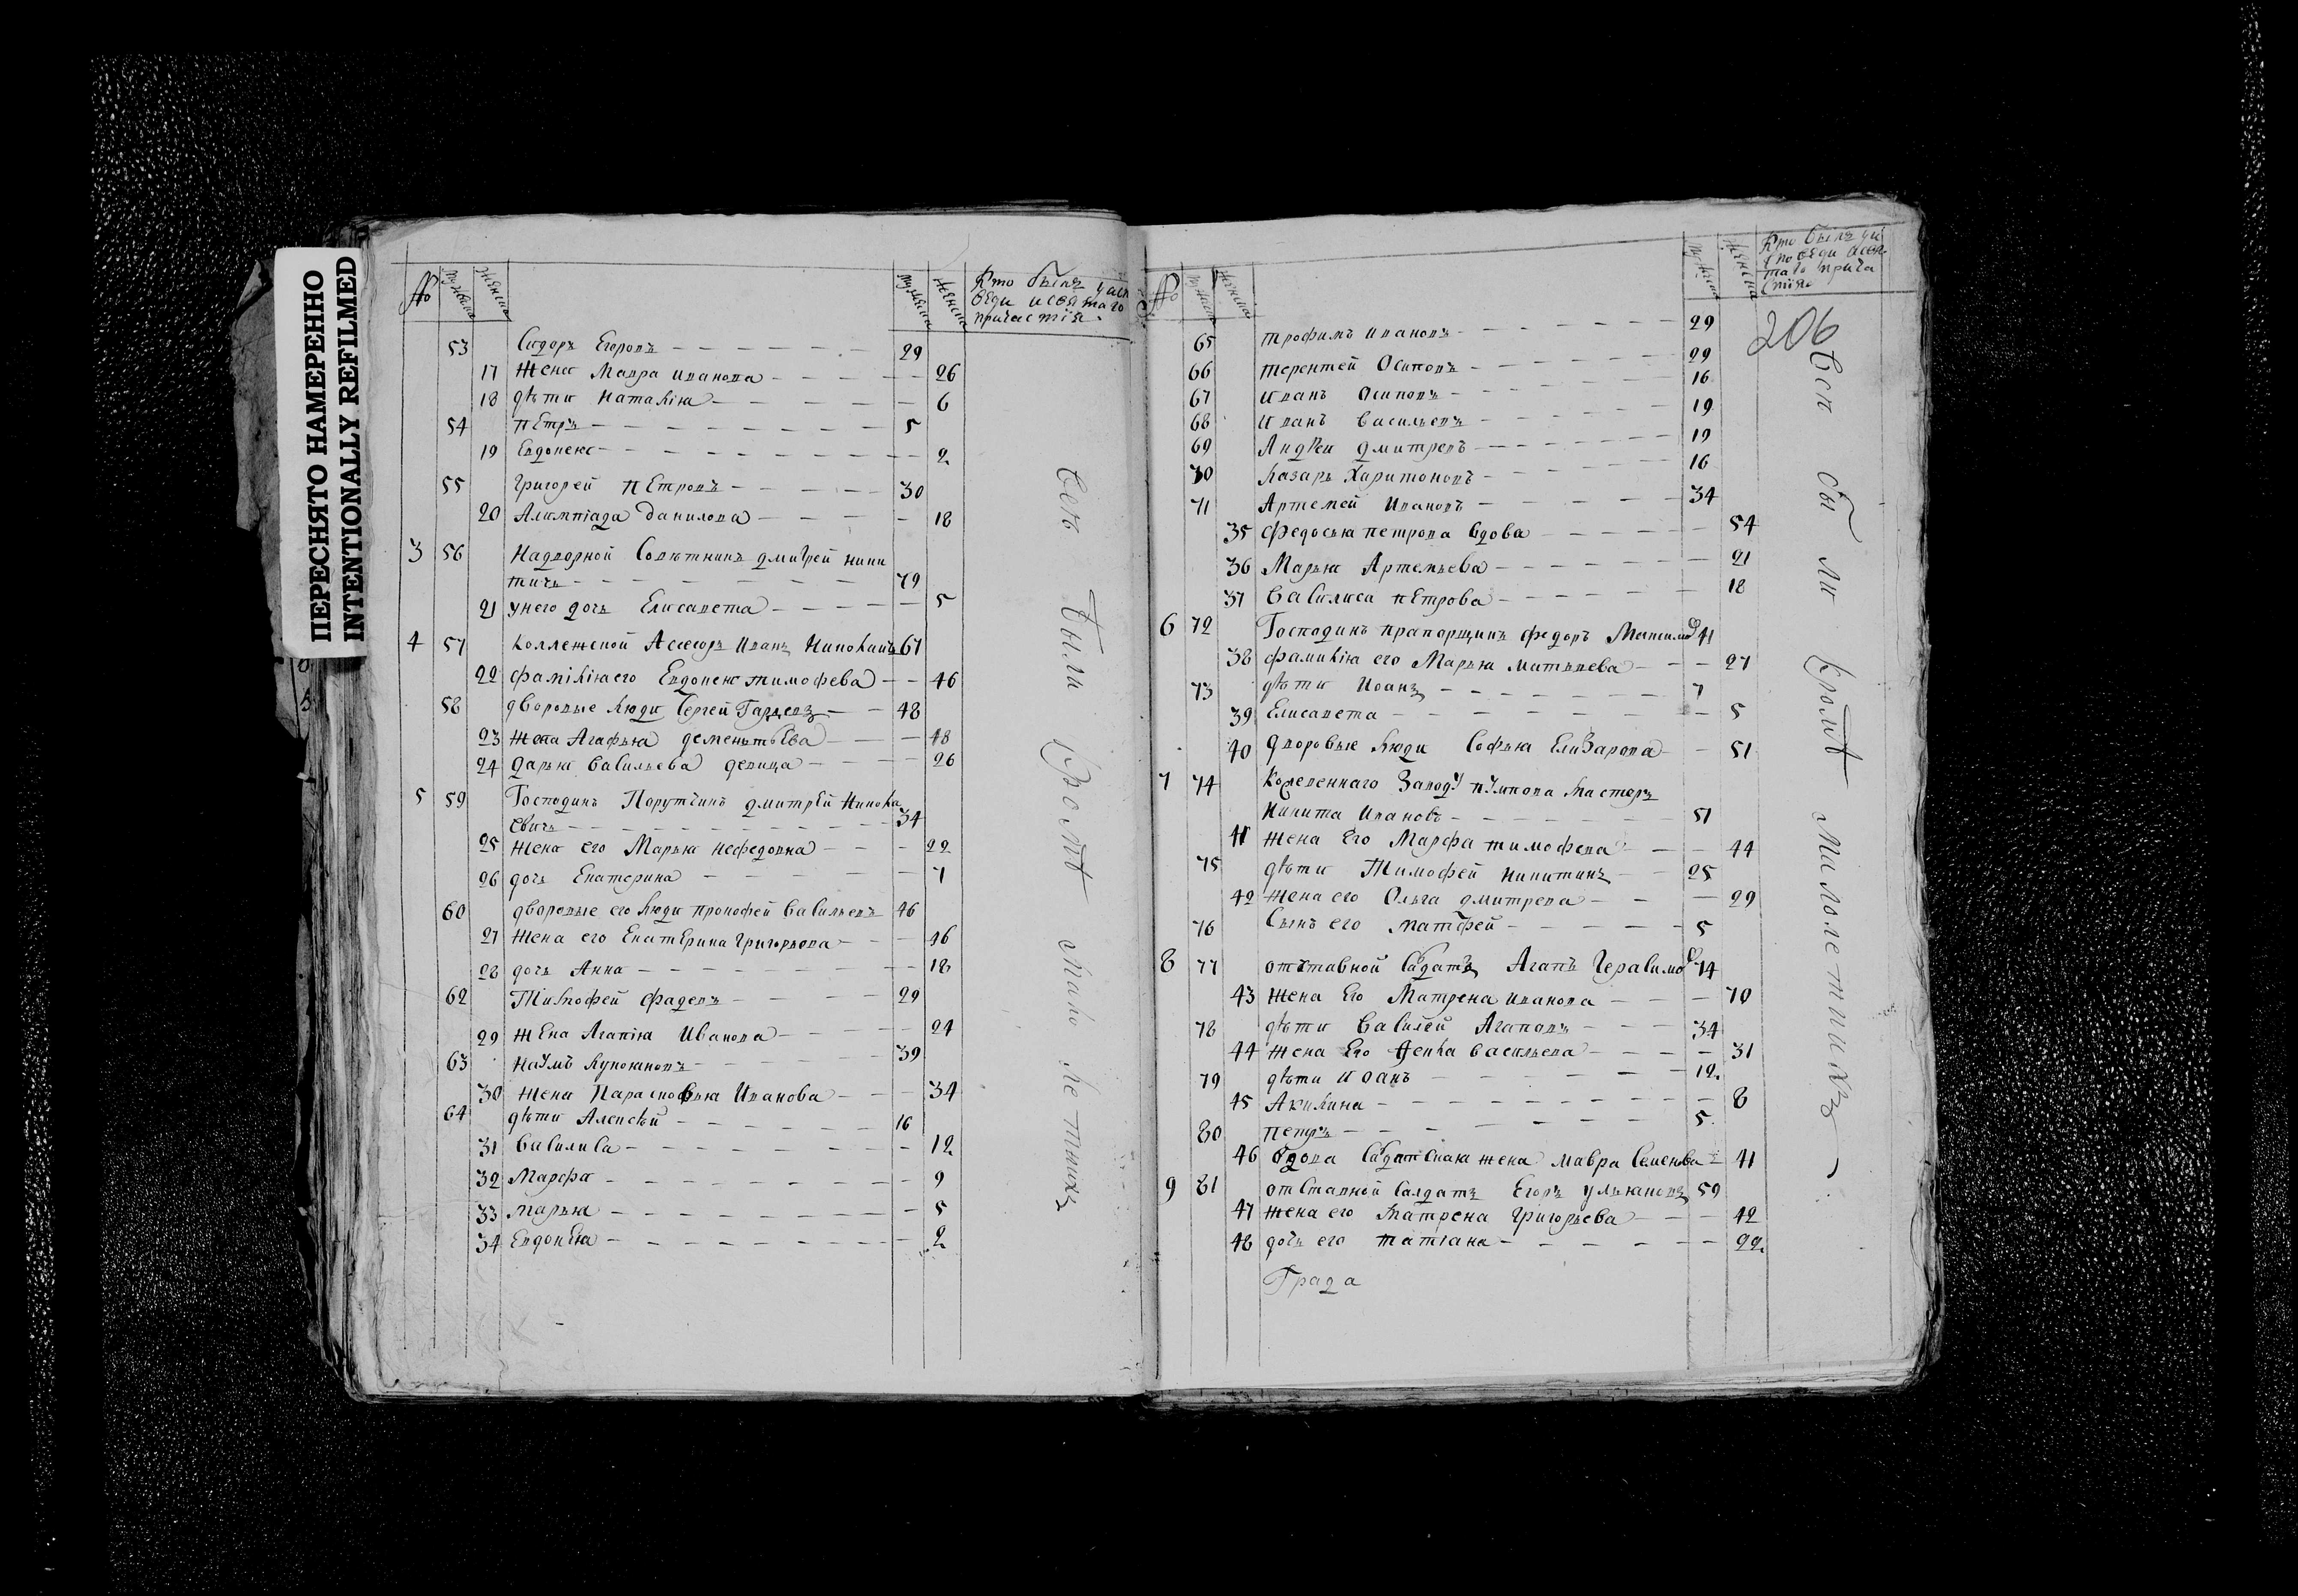 ПЕРЕСНЯТО НАМЕРЕННО
INTENTIONALLY REFILMED
№ мужеска женска мужеска женска Кто былъ у исп
веди и святаго
причастїя.
53 Сидоръ Егоровъ 29
17 жена Мавра иванова 26
18 дѣти наталья 6
54 пЕтръ 5
19 Евдокея 2
55 Григорей пЕтровъ 30
20 Алимпїада данилова 18
3 56 Надворной Советникъ дмитрей ники
тичь 79
21 унего дочь Елисавета 5
4 57 коллежской Асесоръ Иванъ 67
22 фамилия его Евдокея тимофева 46
58 дворовые люди Сергей 48
23 жена Агафья деменьтьЕва 48
24 дарья васильева девица 26
5 59 Господинъ Порутчикъ дмитрей Никола
евичь 34
25 жена его Марья нефедовна 22
26 дочь Екатерина 7
60 дворовые его люди прокофей васильевъ 46
27 жена его ЕкатЕрина григорьева 46
28 дочь Анна 18
62 Тимофей фадеевъ 29
29 жЕна Агапия Иванова 24
63 наумъ 39
30 жена Парасковья Иванова 34
64 дѣти Алексѣй 16
31 василиса 12
32 Марфа 9
33 марья 5
34 Евдокѣя 2
всѣ были кромѣ мало летних
№ мужеска женска мужеска женска Кто былъ у и
споведи и свя
таго прича
стїя
206
65 трофимъ ивановъ 29
66 терентей Осиповъ 29
67 иванъ осиповъ 16
68 иванъ васильевъ 19
69 Андрей дмитревъ 19
70 лазарь Харитоновъ 16
71 Артемей Ивановъ 34
35 федосья петрова вдова 54
36 Марья Артемьева 21
37 василиса пЕтрова 18
6 72 Господинъ прапорщикъ федоръ 41
38 фамилия его Марья матвѣева 27
73 дѣти Иоанъ 7
39 Елисавета 5
40 дворовые люди Софья Елизарова 51
7 74 заводу мастеръ
Никита Ивановъ 51
41 жена Его Марфа тимофева 44
75 дѣти Тимофей никитинъ 25
42 жена его Ольга дмитрева 29
76 Сынъ его матфей 5
8 77 отставной Салдатъ Агапъ Герасимовъ 74
43 жена Его Матрена иванова 70
78 дѣти василей Агаповъ 34
44 жена Его васильева 31
79 дѣти иоанъ 12
45 Акилина 8
80 петръ 5
46 вдова Салдатская жена мавра Семенова 41
9 81 отставной Салдатъ Егоръ ульяновъ 59
47 жена его матрена григорьева 42
48 дочь его татїана 22
Града
всѣ бы ли кромѣ малолетнихъ